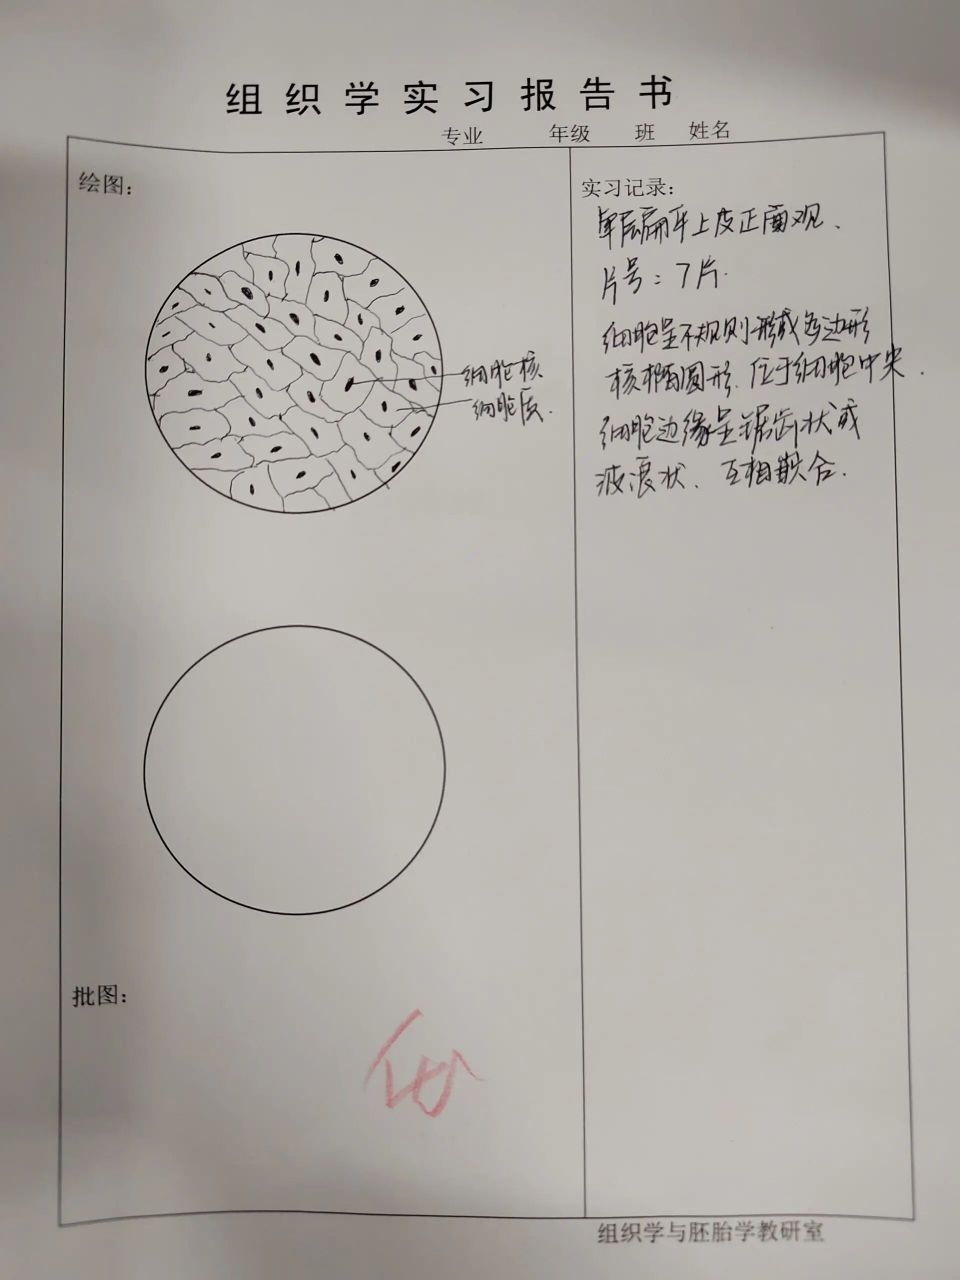 组织学实习报告书
专业 年级 班 姓名
绘图:
细胞核
细胞质.
实习记录:
单层扁平上皮正面观、
片号:7片.
细胞呈不规则形或多边形
核椭圆形.位于细胞中央.
细胞边缘呈锯齿状或
波浪状、互相嵌合.
批图:
组织学与胚胎学教研室